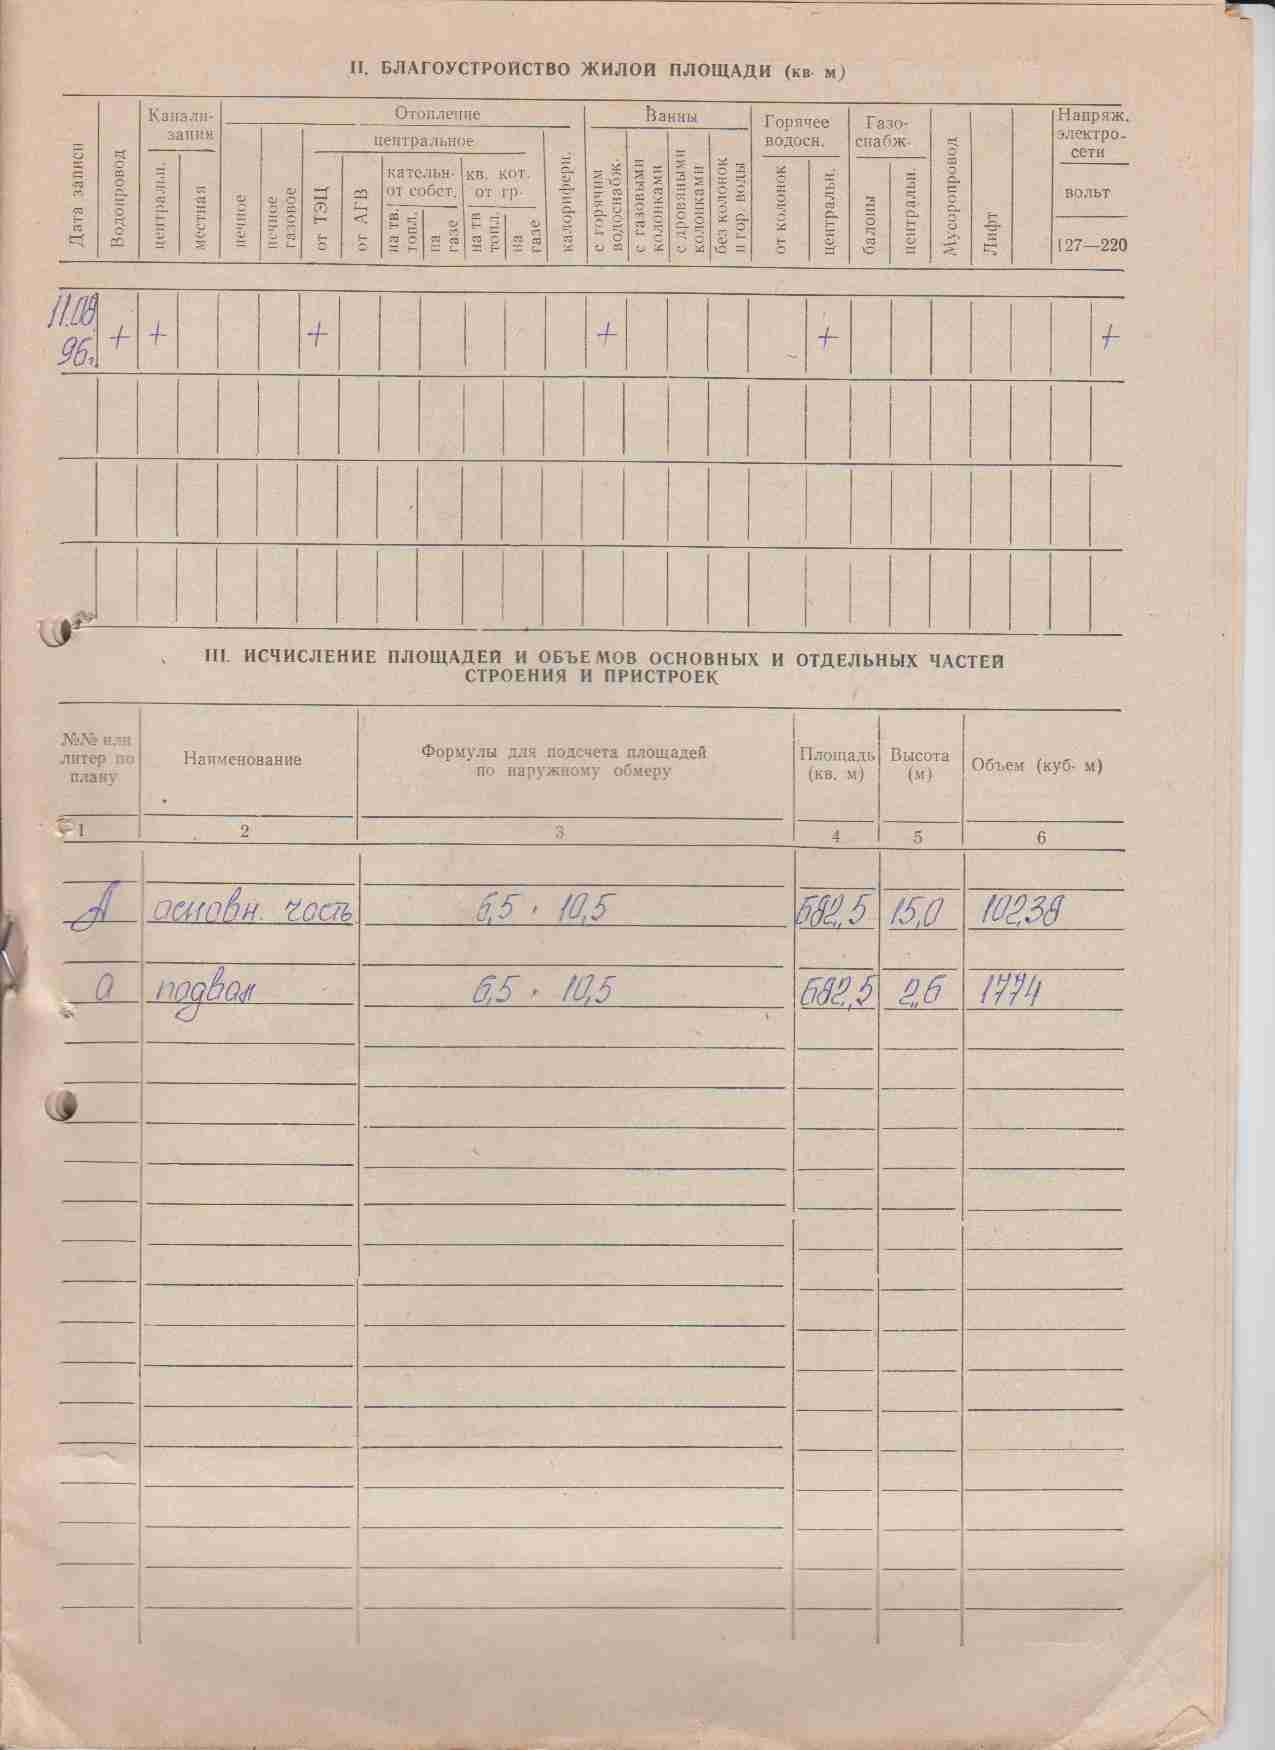 II. БЛАГОУСТРОЙСТВО ЖИЛОЙ ПЛОЩАДИ (кв. м)
Дата записи
Водопровод
Канали-
зация
центральн.
местная
Отопление
печное
печное
газовое
центральное
от ТЭЦ
от АГВ
кательн-
от собст.
на тв.
топл.
на
газе
кв. кот.
от гр-
на тв
топл.
на
газе
калорифери.
Ванны
с горячим
водоснабж.
с газовыми
колонками
с дровяными
колонками
без колонок
и гор. воды
Горячее
водосн.
от колонок
центральн.
Газо-
снабж-
балоны
центральн.
Мусоропровод
Лифт
Напряж.
электро-
сети
вольт
127—220
11.08
96г. + + + + + +
III. ИСЧИСЛЕНИЕ ПЛОЩАДЕЙ И ОБЪЕМОВ ОСНОВНЫХ И ОТДЕЛЬНЫХ ЧАСТЕЙ
СТРОЕНИЯ И ПРИСТРОЕК
№№ или
литер по
плану
Наименование
Формулы для подсчета площадей
по наружному обмеру
Площадь
(кв. м)
Высота
(м)
Объем (куб- м)
1 2 3 4 5 6
А основн. часть 65 · 10,5 682,5 15,0 10238
а подвал 65 · 10,5 682,5 2,6 1774